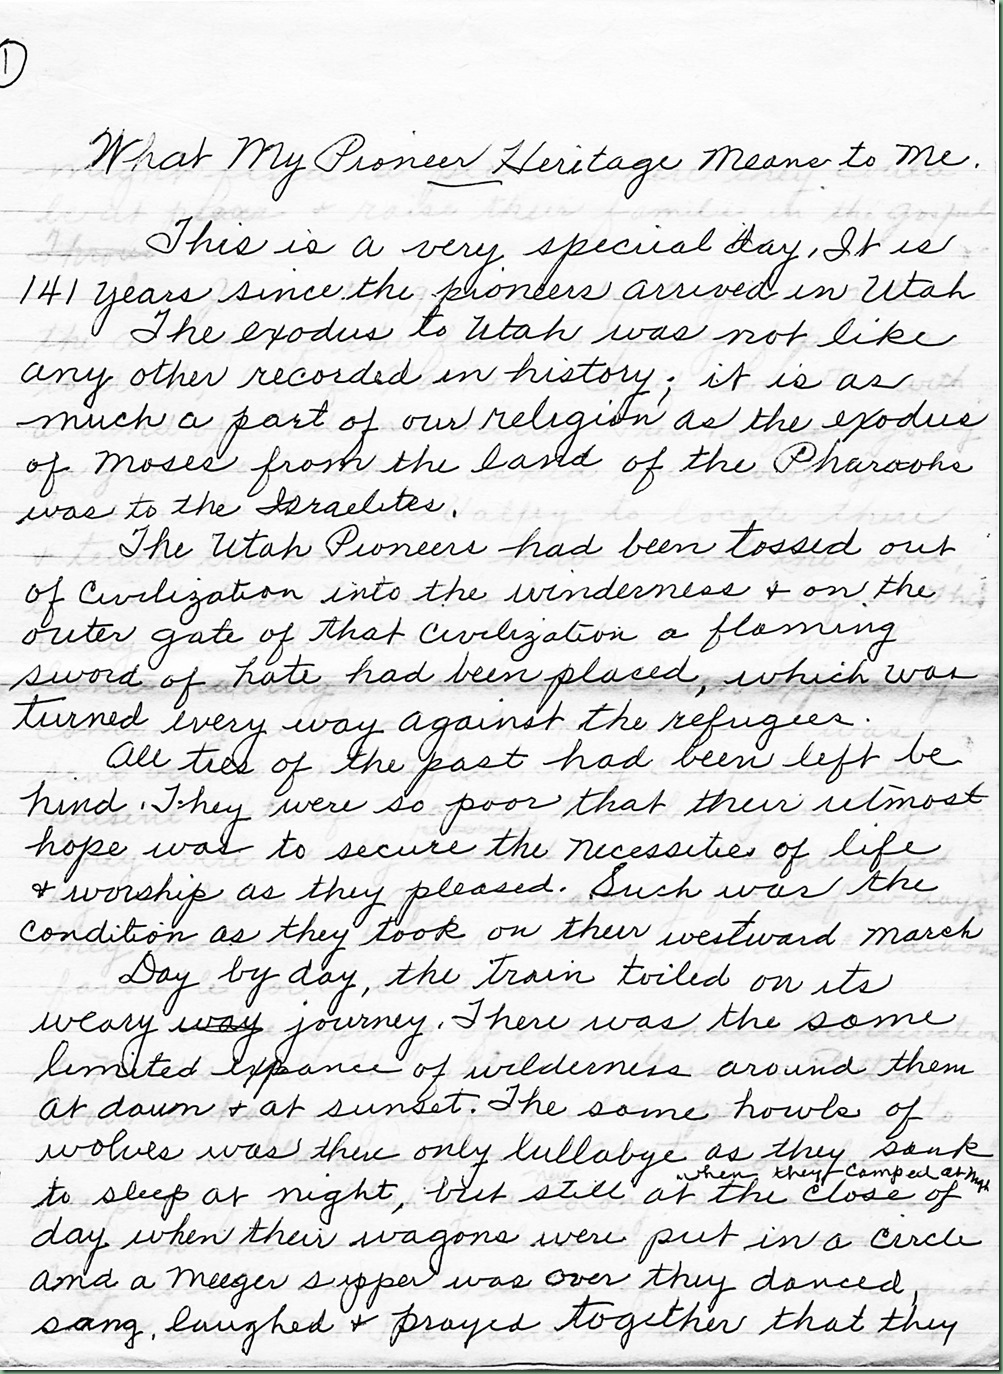 1
What My Pioneer Heritage Means to Me.
This is a very speciial day. It is
141 years since the pioneers arrived in Utah
The exodus to Utah was not like
any other recorded in history; it is as
much a part of our religion as the exodus
of Moses from the land of the Pharaohs
was to the Israelites.
The Utah Pioneers had been tossed out
of civilization into the winderness & on the
outer gate of that civilization a flaming
sword of hate had been placed, which was
turned every way against the refugees.
All ties of the past had been left be
hind. They were so poor that their utmost
hope was to secure the necessities of life
& worship as they pleased. Such was the
condition as they took on their westward march
Day by day, the train toiled on its
weary way journey. There was the same
limited expance of wilderness around them
at dawn & at sunset. The same howls of
wolves was their only lullabye as they sank
when they camped at night
to sleep at night, but still at the close of
day when their wagons were put in a circle
and a meeger supper was over they danced,
sang, laughed & prayed together that they